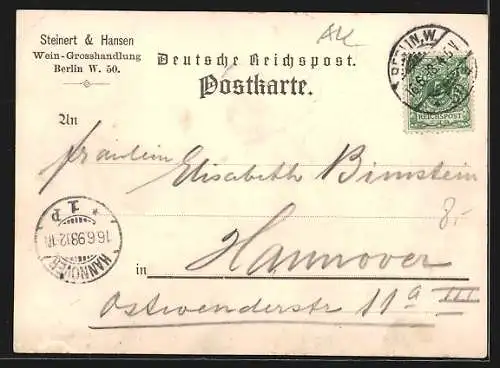 Steinert & Hansen
Wein-Grosshandlung
Berlin W. 50.
Deutsche Reichspost.
Postkarte.
BERLIN, W.
REICHSPOST
An
Fräulein Elisabeth Bimstein
8.-
in Hannover
Ostwenderstr 11a III
HANNOVER
16.6.98.12-1N
* 1 P